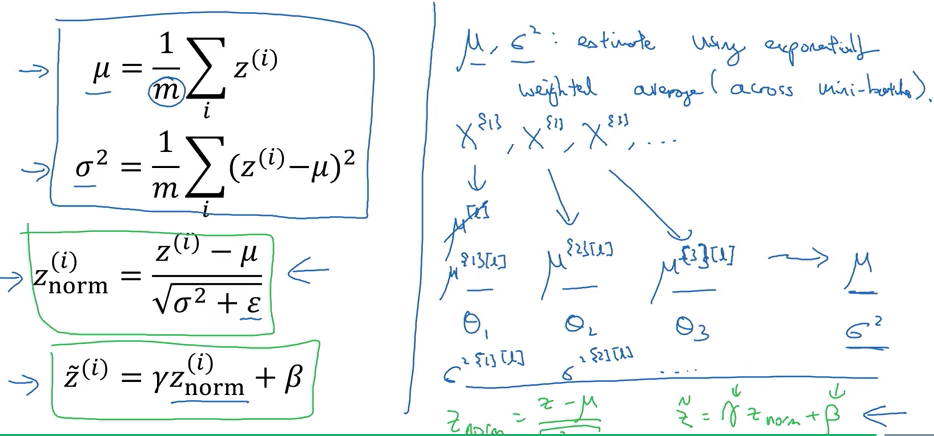 μ = 1/m ∑_i z^(i)
σ² = 1/m ∑_i (z^(i)−μ)²
z_norm^(i) = (z^(i) − μ)/√(σ² + ε)
z̃^(i) = γz_norm^(i) + β
μ, σ² : estimate using exponentially
weighted average (across mini-batches).
X^{1}, X^{2}, X^{3}, ...
μ^[l]
μ^{1}[l] μ^{2}[l] μ^{3}[l] → μ
θ₁ θ₂ θ₃ σ²
σ²^{1}[l] σ²^{2}[l] ....
z_norm = z − μ z̃ = γ z_norm + β